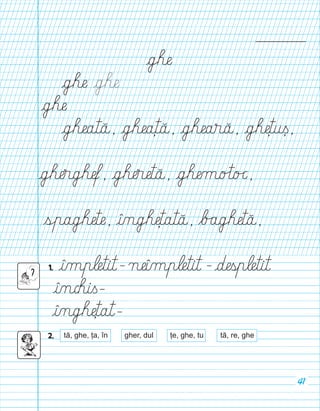 ghe
ghe ghe
ghe
gheată, gheață, gheară, ghețuș,
gherghef, gheretă, ghemotoc,
spaghete, înghețată, baghetă,
1. împletit - neîmpletit - despletit
închis -
înghețat -
2. tă, ghe, ța, în gher, dul țe, ghe, tu tă, re, ghe
41